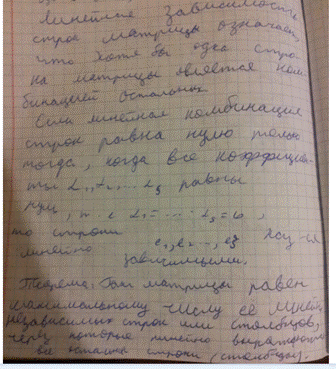 Линейная зависимость
строк матрицы означает,
что хотя бы одна стро-
ка матрицы является ком-
бинацией остальных.
Если линейная комбинация
строк равна нулю только
тогда, когда все коэффициен-
ты равны
нулю, =
то строки
линейно зависимыми.
Теорема: Ранг матрицы равен
максимальному числу её линей.
независимых строк или столбцов,
через которые линейно выражаются
все остальн строки (столбцы).